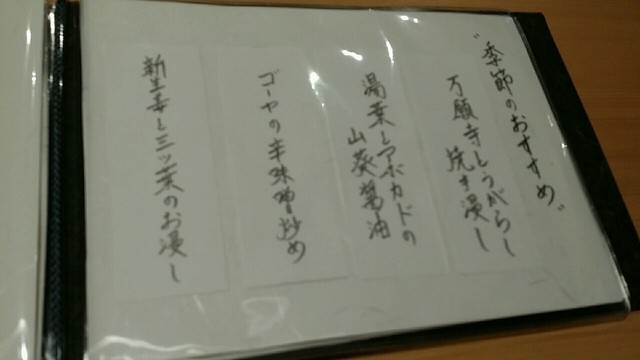 "季節のおすすめ"
万願寺とうがらし
焼き浸し
湯葉とアボカドの
山葵醤油
ゴーヤの辛味噌炒め
新生姜と三ッ葉のお浸し